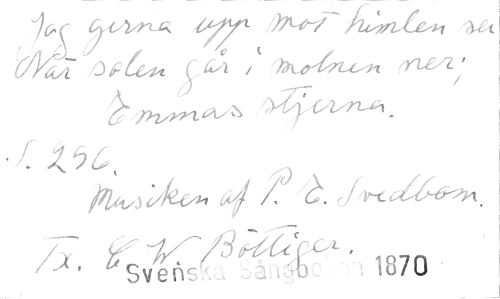 Jag gerna upp mot himlen ser
När solen går i molnen ner;
Emmas stjerna.
S. 296.
Musiken af P. E. Svedbom.
Tx. C W Böttiger.
Svenska Sångboken 1870